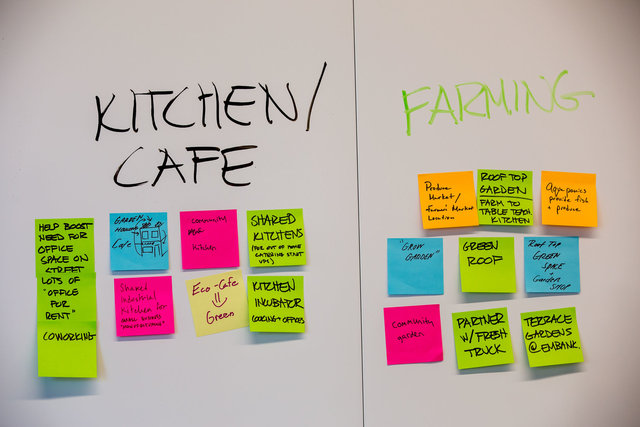 KITCHEN/
CAFE
HELP BOOST
NEED FOR
OFFICE
SPACE ON
STREET
LOTS OF
"OFFICE
FOR
RENT"
COWORKING
GARDEN
Cafe
community
kitchen
SHARED
KITCHENS
(FOR OUT OF HOME
CATERING START
UPS)
Shared
industrial
kitchen for
small business
Eco-Cafe
Green
KITCHEN
INCUBATOR
COOKING + OFFICES
FARMING
Produce
Market/
Farmers Market
Location
ROOF TOP
GARDEN
FARM TO
TABLE TEACH.
KITCHEN
Aquaponics
provide fish
+ produce
"GROW
GARDEN"
GREEN
ROOF
Roof Top
GREEN
SPACE
+
Garden
SHOP
Community
garden
PARTNER
W/FRESH
TRUCK
TERRACE
GARDENS
@EMBANK.